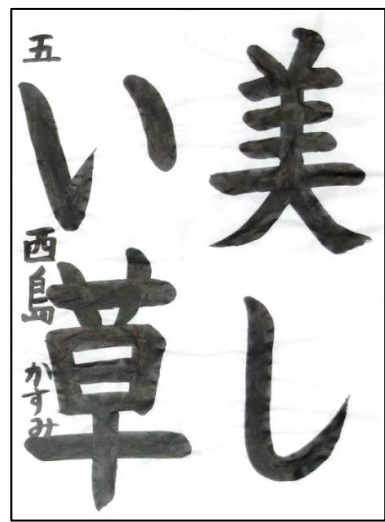 美し
い草
五 西島 かすみ